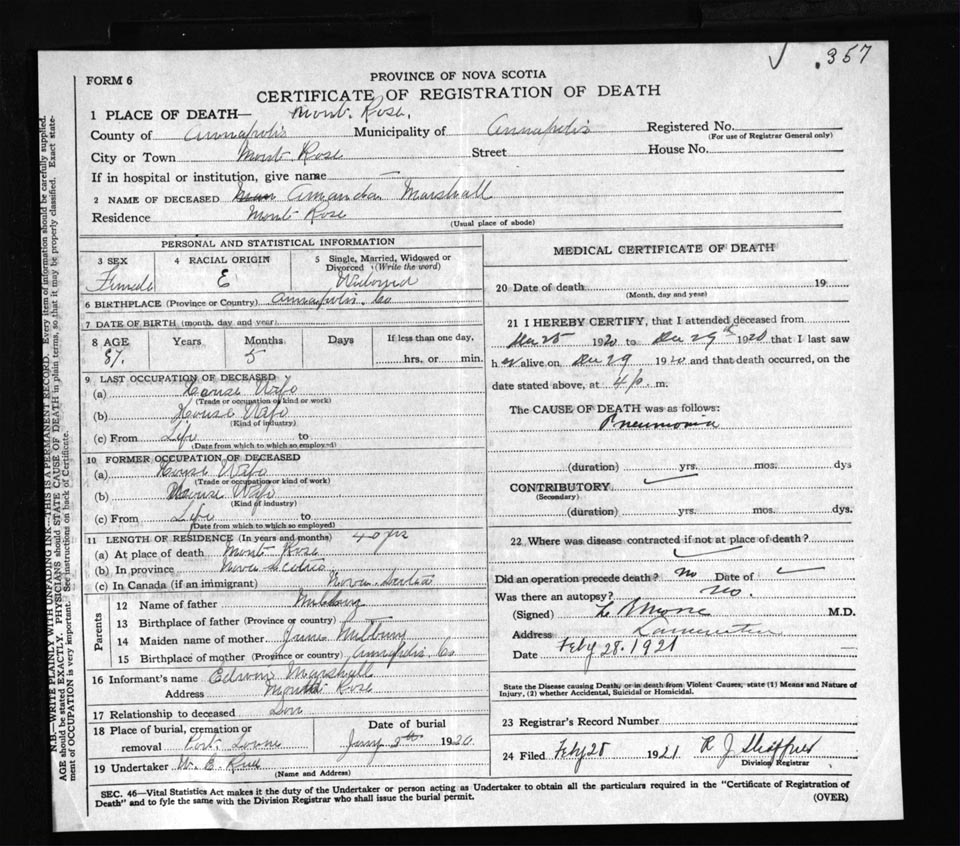 .357
FORM 6
PROVINCE OF NOVA SCOTIA
CERTIFICATE OF REGISTRATION OF DEATH
1 PLACE OF DEATH— Mont. Rose.
County of Annapolis Municipality of Annapolis Registered No.
(For use of Registrar General only)
City or Town Mont Rose Street House No.
If in hospital or institution, give name
2 NAME OF DECEASED Amanda Marshall
Residence Mont Rose
(Usual place of abode)
PERSONAL AND STATISTICAL INFORMATION
3 SEX 4 RACIAL ORIGIN 5 Single, Married, Widowed or
Divorced (Write the word)
Female E Widowed
6 BIRTHPLACE (Province or Country) Annapolis. Co
7 DATE OF BIRTH (month, day and year)
8 AGE Years Months Days If less than one day,
87. 5 hrs. or min.
9 LAST OCCUPATION OF DECEASED
(a) House Wife
(Trade or occupation or kind or work)
(b) House Wife
(Kind of industry)
(c) From Life to
(Date from which to which so employed)
10 FORMER OCCUPATION OF DECEASED
(a) House Wife
(Trade or occupation or kind of work)
(b) House Wife
(Kind of industry)
(c) From Life to
(Date from which to which so employed)
11 LENGTH OF RESIDENCE (In years and months) 40 yrs
(a) At place of death Mont Rose
(b) In province Nova Scotia
(c) In Canada (if an immigrant) Nova Scotia
Parents
12 Name of father
13 Birthplace of father (Province or country)
14 Maiden name of mother Jane Milbury
15 Birthplace of mother (Province or country) Annapolis. Co
16 Informant's name Edwin Marshall
Address Mont Rose
17 Relationship to deceased Son
18 Place of burial, cremation or Date of burial
removal Port Lorne Jany 2th 1920
19 Undertaker W. E.
(Name and Address)
MEDICAL CERTIFICATE OF DEATH
20 Date of death 19
(Month, day and year)
21 I HEREBY CERTIFY, that I attended deceased from
Dec 25 1920 to Dec 29th 1920 that I last saw
h er alive on Dec 29 1920 and that death occurred, on the
date stated above, at 4 p. m.
The CAUSE OF DEATH was as follows:
Pneumonia
(duration) yrs. mos. dys
CONTRIBUTORY
(Secondary)
(duration) yrs. mos. dys.
22 Where was disease contracted if not at place of death?
Did an operation precede death? no Date of
Was there an autopsy? no.
(Signed) Morse M.D.
Address Lawrencetown
Date Feby 28. 1921
State the Disease causing Death, or in death from Violent Causes, state (1) Means and Nature of
Injury, (2) whether Accidental, Suicidal or Homicidal.
23 Registrar's Record Number
24 Filed Feby 28 1921 R J Shaffner
Division Registrar
SEC. 46—Vital Statistics Act makes it the duty of the Undertaker or person acting as Undertaker to obtain all the particulars required in the "Certificate of Registration of
Death" and to fyle the same with the Division Registrar who shall issue the burial permit.
(OVER)
N.B.—WRITE PLAINLY WITH UNFADING INK—THIS IS A PERMANENT RECORD. Every item of information should be carefully supplied.
AGE should be stated EXACTLY. PHYSICIANS should STATE CAUSE OF DEATH in plain terms, so that it may be properly classified. Exact state-
ment of OCCUPATION is very important. See instructions on back of Certificate.